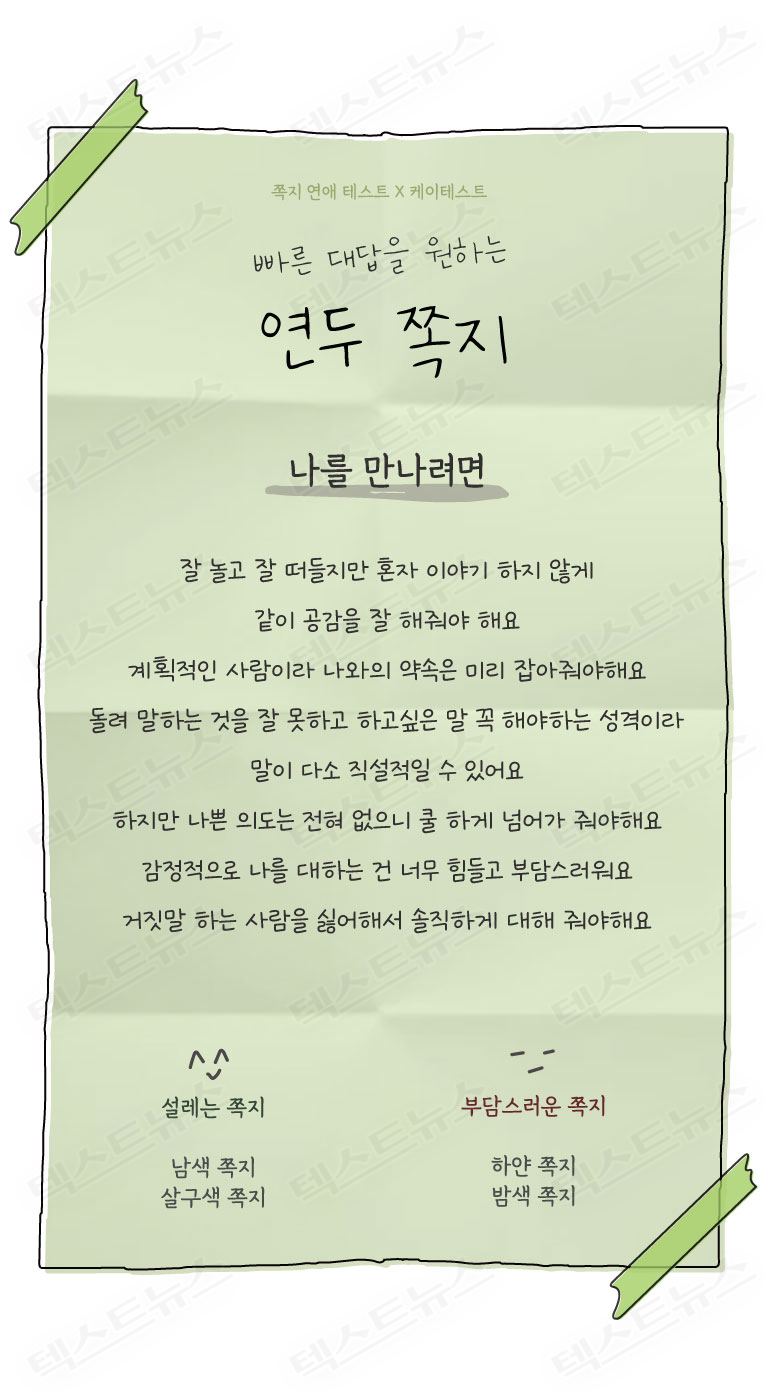 쪽지 연애 테스트 X 케이테스트
빠른 대답을 원하는
연두 쪽지
나를 만나려면
잘 놀고 잘 떠들지만 혼자 이야기 하지 않게
같이 공감을 잘 해줘야 해요
계획적인 사람이라 나와의 약속은 미리 잡아줘야해요
돌려 말하는 것을 잘 못하고 하고싶은 말 꼭 해야하는 성격이라
말이 다소 직설적일 수 있어요
하지만 나쁜 의도는 전혀 없으니 쿨 하게 넘어가 줘야해요
감정적으로 나를 대하는 건 너무 힘들고 부담스러워요
거짓말 하는 사람을 싫어해서 솔직하게 대해 줘야해요
설레는 쪽지
남색 쪽지
살구색 쪽지
부담스러운 쪽지
하얀 쪽지
밤색 쪽지
텍스트뉴스